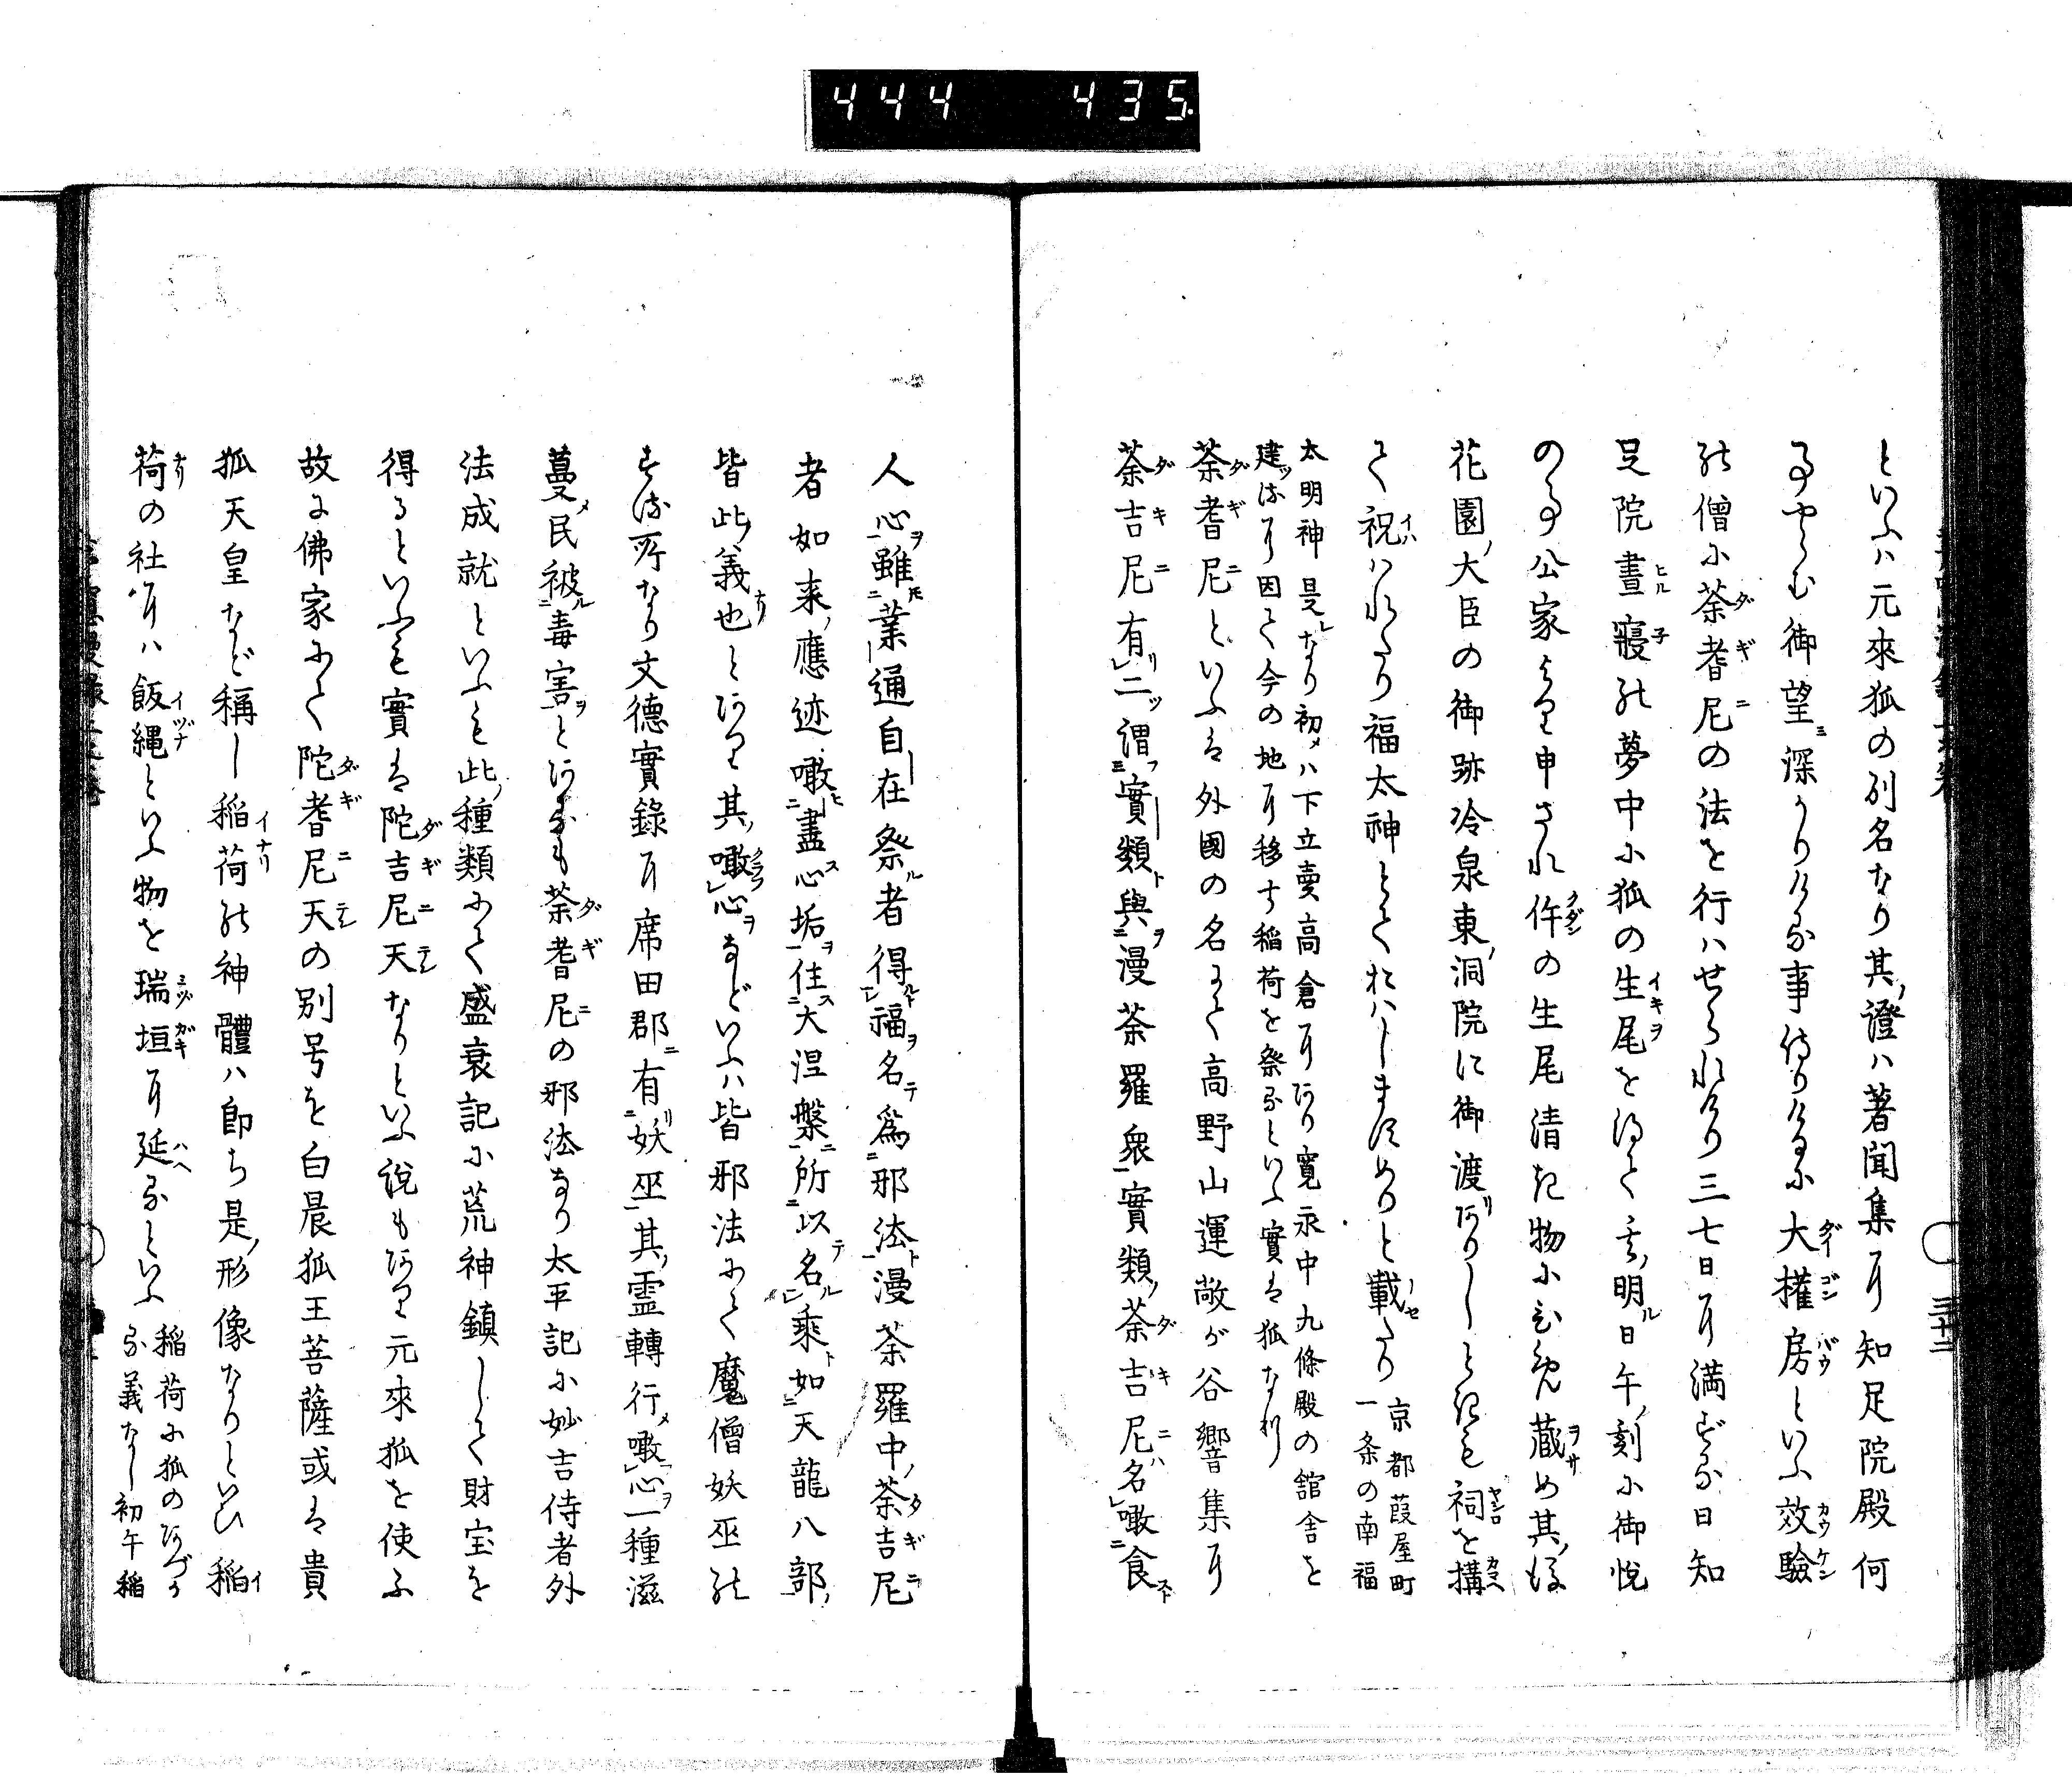 444 435.
といふハ元來狐の別名なり其證ハ著聞集に知足院殿何
事やらむ御望深かりける事侍りけるに大權房といふ效驗
の僧に荼耆尼の法を行ハせられけり三七日に満ずる日知
足院晝寢の夢中に狐の生尾を得て云々明日午刻に御悦
の事公家より申され件の生尾清き物に納め其後
花園大臣の御跡冷泉東洞院に御渡ありしとき祠を搆
て祝ハれたり福太神とておハしますめりと載たり
京都葭屋町
一条の南福
太明神是なり初メハ下立賣高倉にあり寛永中九條殿の舘舎を
建るに因て今の地に移す稲荷を祭るといふ實は狐なり
荼耆尼といふは外國の名にて高野山運敞が谷響集に
荼吉尼有二謂實類與漫荼羅衆實類荼吉尼名噉食
人心雖業通自在祭者得福名爲邪法漫荼羅中荼吉尼
者如来應迹噉盡心垢住大涅槃所以名乘如天龍八部
皆此義也とあり其噉心などいふハ皆邪法にて魔僧妖巫の
する所なり文德實録に席田郡有妖巫其霊轉行噉心一種滋
蔓民被毒害とあるも荼耆尼の邪法なり太平記に妙吉侍者外
法成就といふも此種類にて盛衰記に荒神鎮して財宝を
得るといふも實は陀吉尼天なりといふ説もあり元來狐を使ふ
故に佛家にて陀耆尼天の別号を白晨狐王菩薩或は貴
狐天皇など稱し稲荷の神體ハ即ち是形像なりといひ稲
荷の社にハ飯縄といふ物を瑞垣に延るといふ
稲荷に狐のあづか
る義なし初午稲